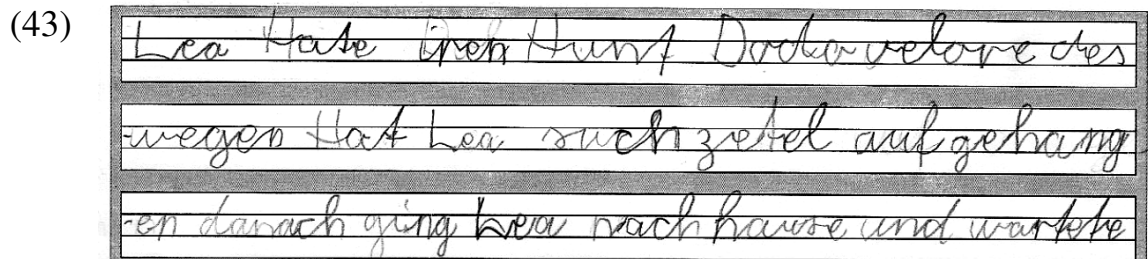 (43)
Lea Hate iren Hunt Dodo velore des
-wegen Hat Lea such zetel aufgehang
-en danach ging Lea nach hause und wartete